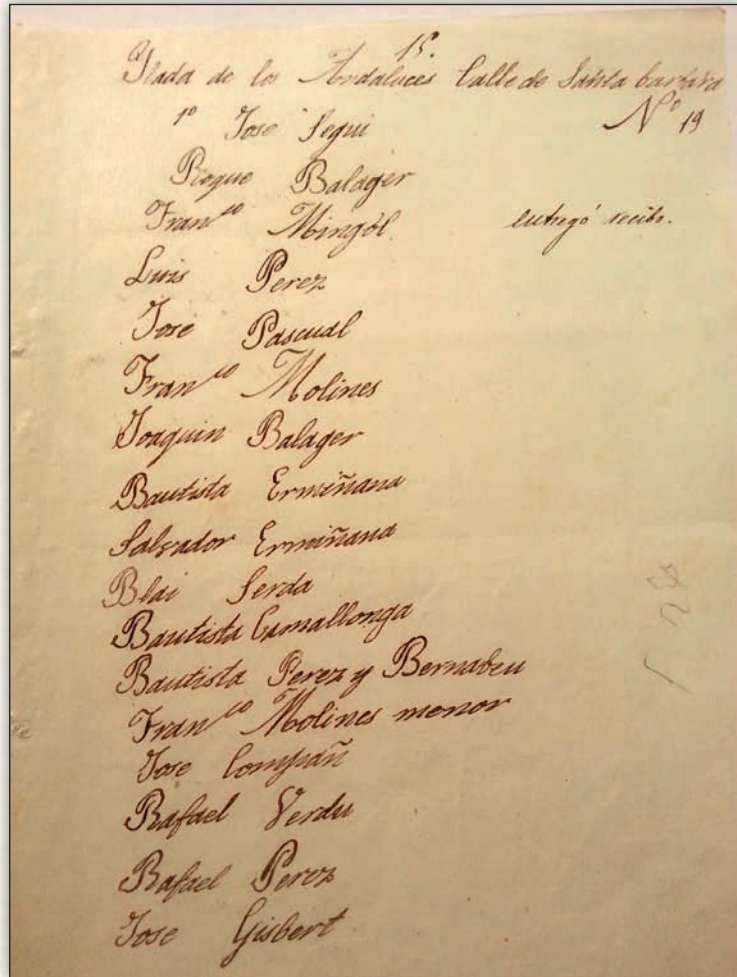 15.
Filada de los Andaluces Calle de Santa barbara
Nº 19
1º Jose Segui
Roque Balager
Fran.co Mingól entregó recibo.
Luis Perez
José Pascual
Fran.co Molines
Joaquin Balager
Bautista Ermiñana
Salvador Ermiñana
Blai Serda
Bautista Camallonga
Bautista Perez y Bernabeu
Fran.co Molines menor
Jose Compañ
Rafael Verdu
Rafael Perez
Jose Gisbert